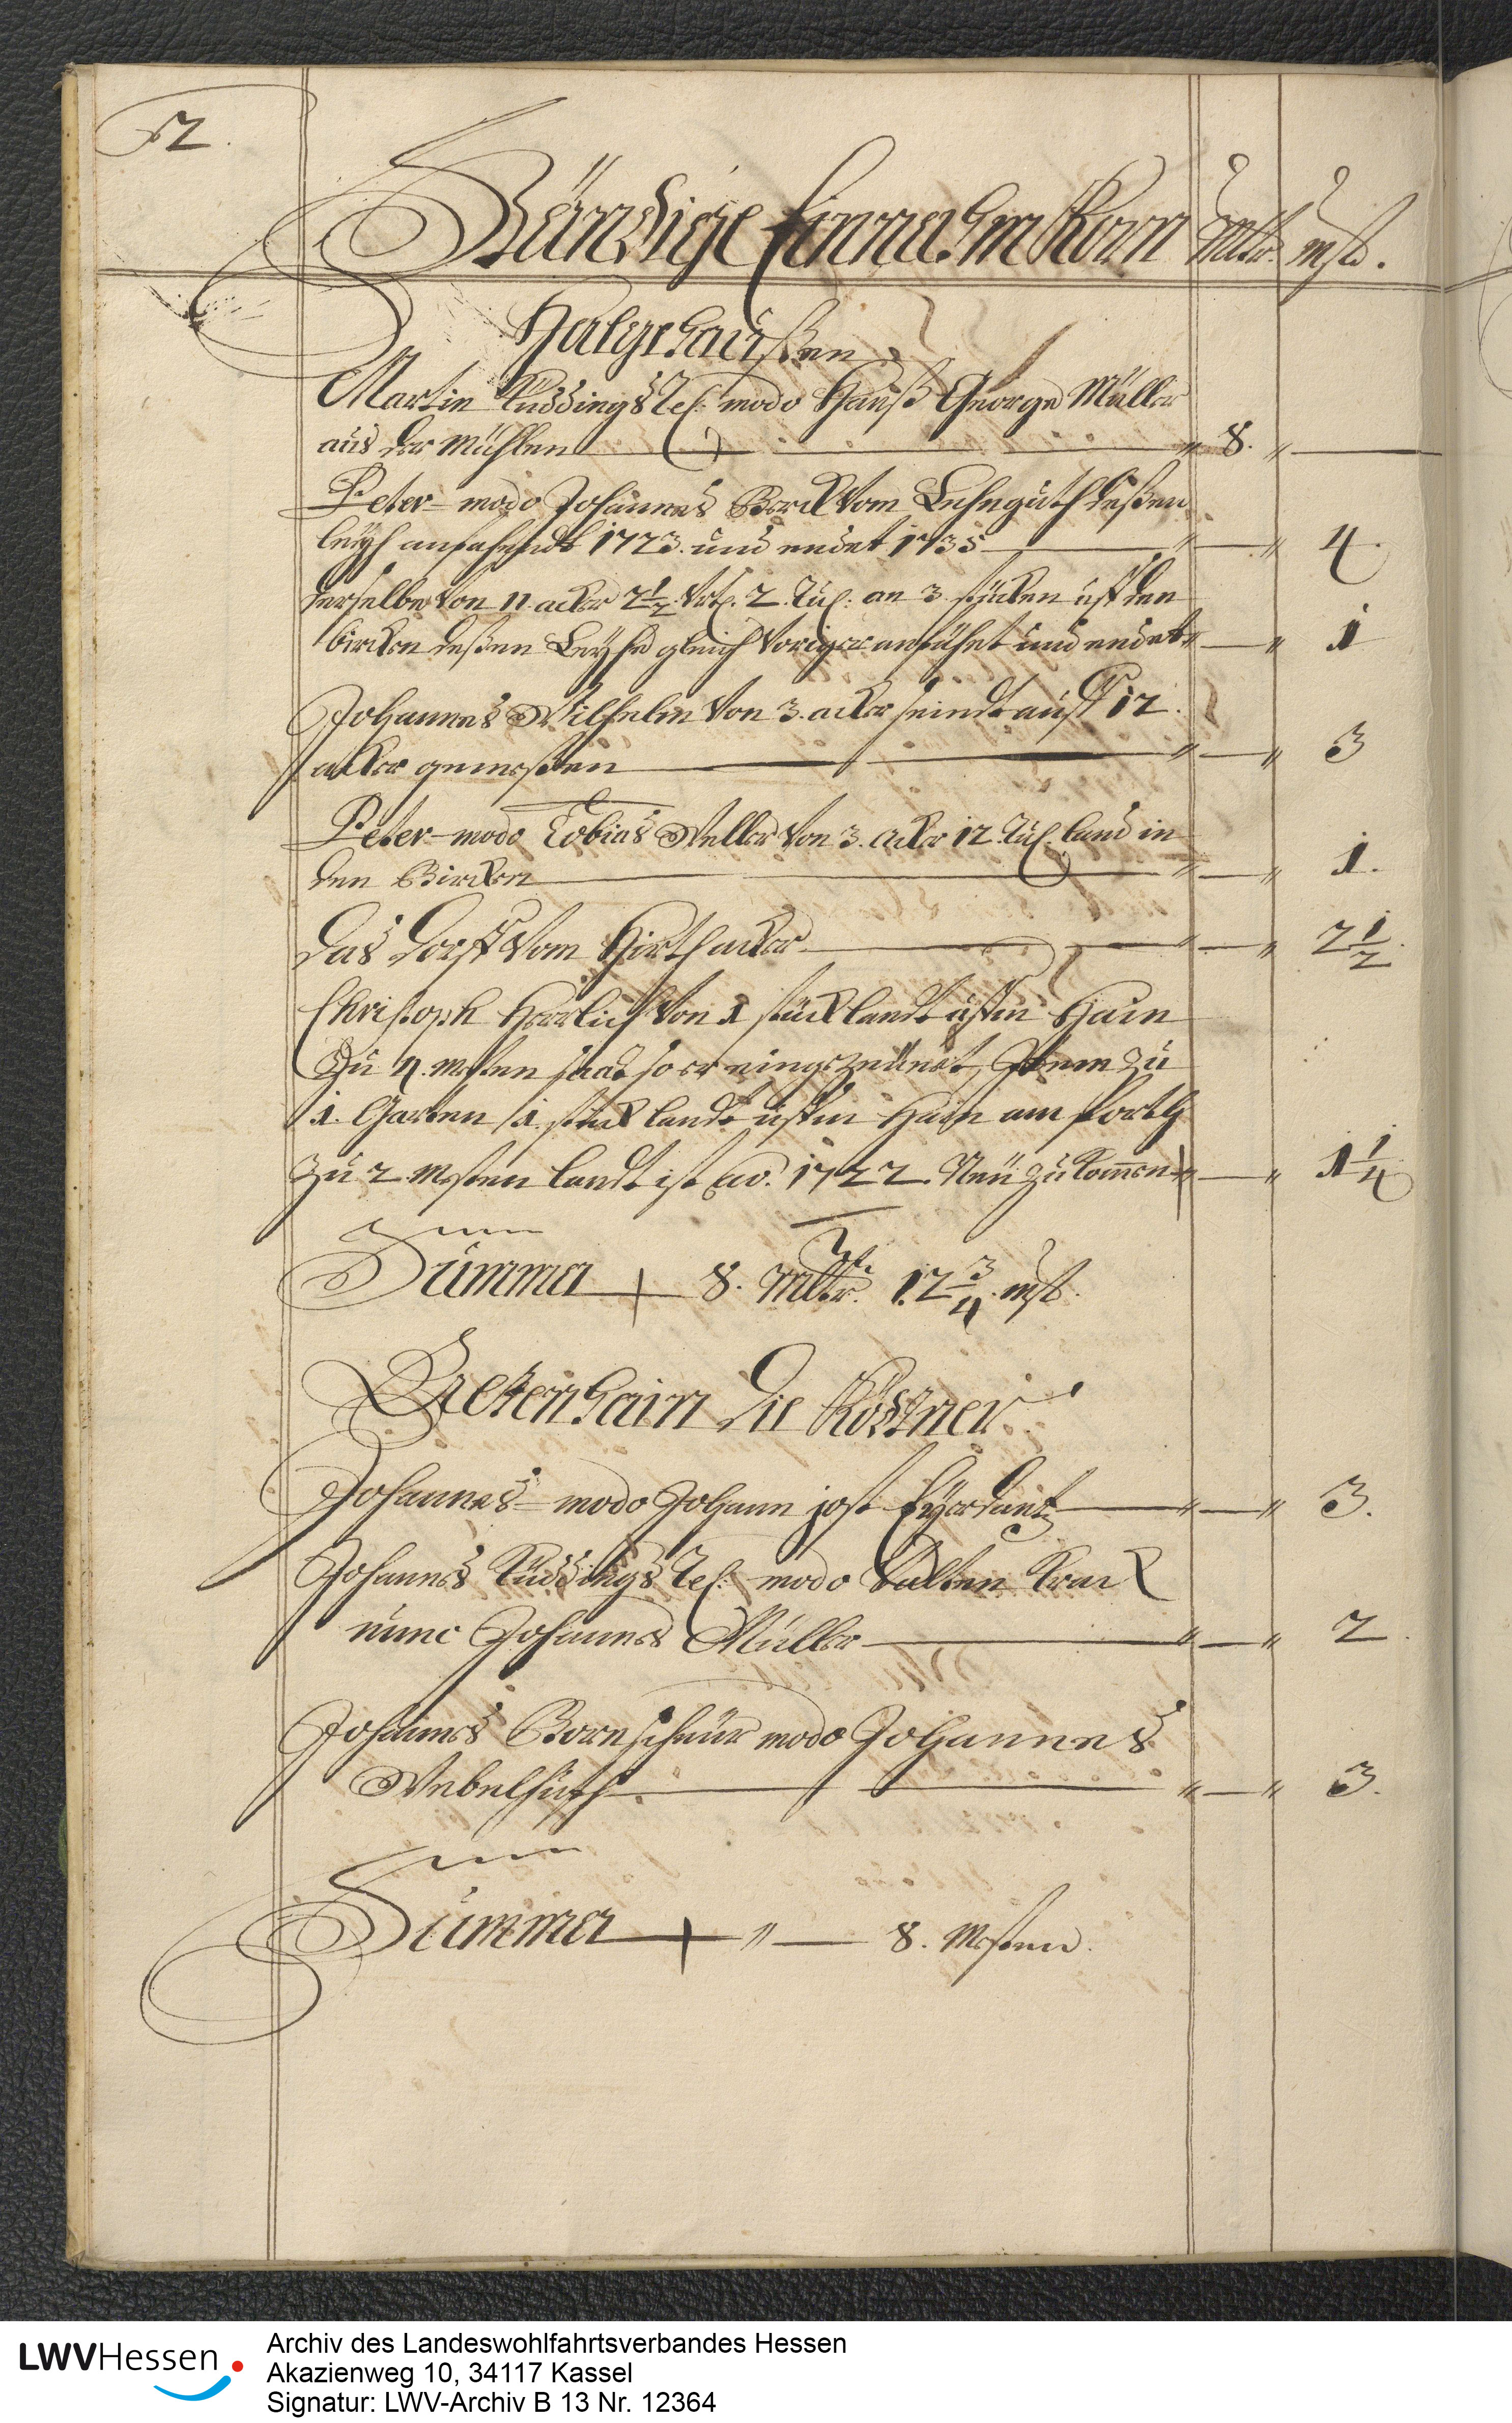 52.
Ständige Einnahm Korn Mltr. mst.
Halgehaußen
Martin Ruddings rel: modo Hanß George Müller
aus der Mühlen 8.
Peter modo Johannes Borck vom Lehnguth deßen
leyh anfahend 1723. und endet 1735 4.
derselbe von 11. acker 2 1/2. Vrtl. 2. Ruth: an 3. stücken uff den
bircken deßen Leyhe gleich voriger anfähet und endet 1
Johannes Wilhelm von 3. acker seindt auff 12.
acker gemeßen 3
Peter modo Tobias Weller von 3. acker 12. Ruth. land in
den Bircken 1.
das dorff vom Hirthacker 2 1/2.
Christoph Herrlich von 1 stück landt uffm Hain
zu 4. mesten saat so er eingezeünet, Item zu
1. Garten 1. stück landt uffm Hain am
zu 2 Mesten landt ist ao. 1722. Neü zukomen 1 1/4
Summa 8. Mltr. 12 3/4. mst.
Breckenhain die Köstner
Johannes modo Johann jost 3.
Johannes Rüddings rel: modo Valten Krack
nunc Johannes Müller 2.
Johannes Bornscheuer modo Johannes
Nebelhuth 3.
Summa 8. Mesten.
LWVHessen
Archiv des Landeswohlfahrtsverbandes Hessen
Akazienweg 10, 34117 Kassel
Signatur: LWV-Archiv B 13 Nr. 12364